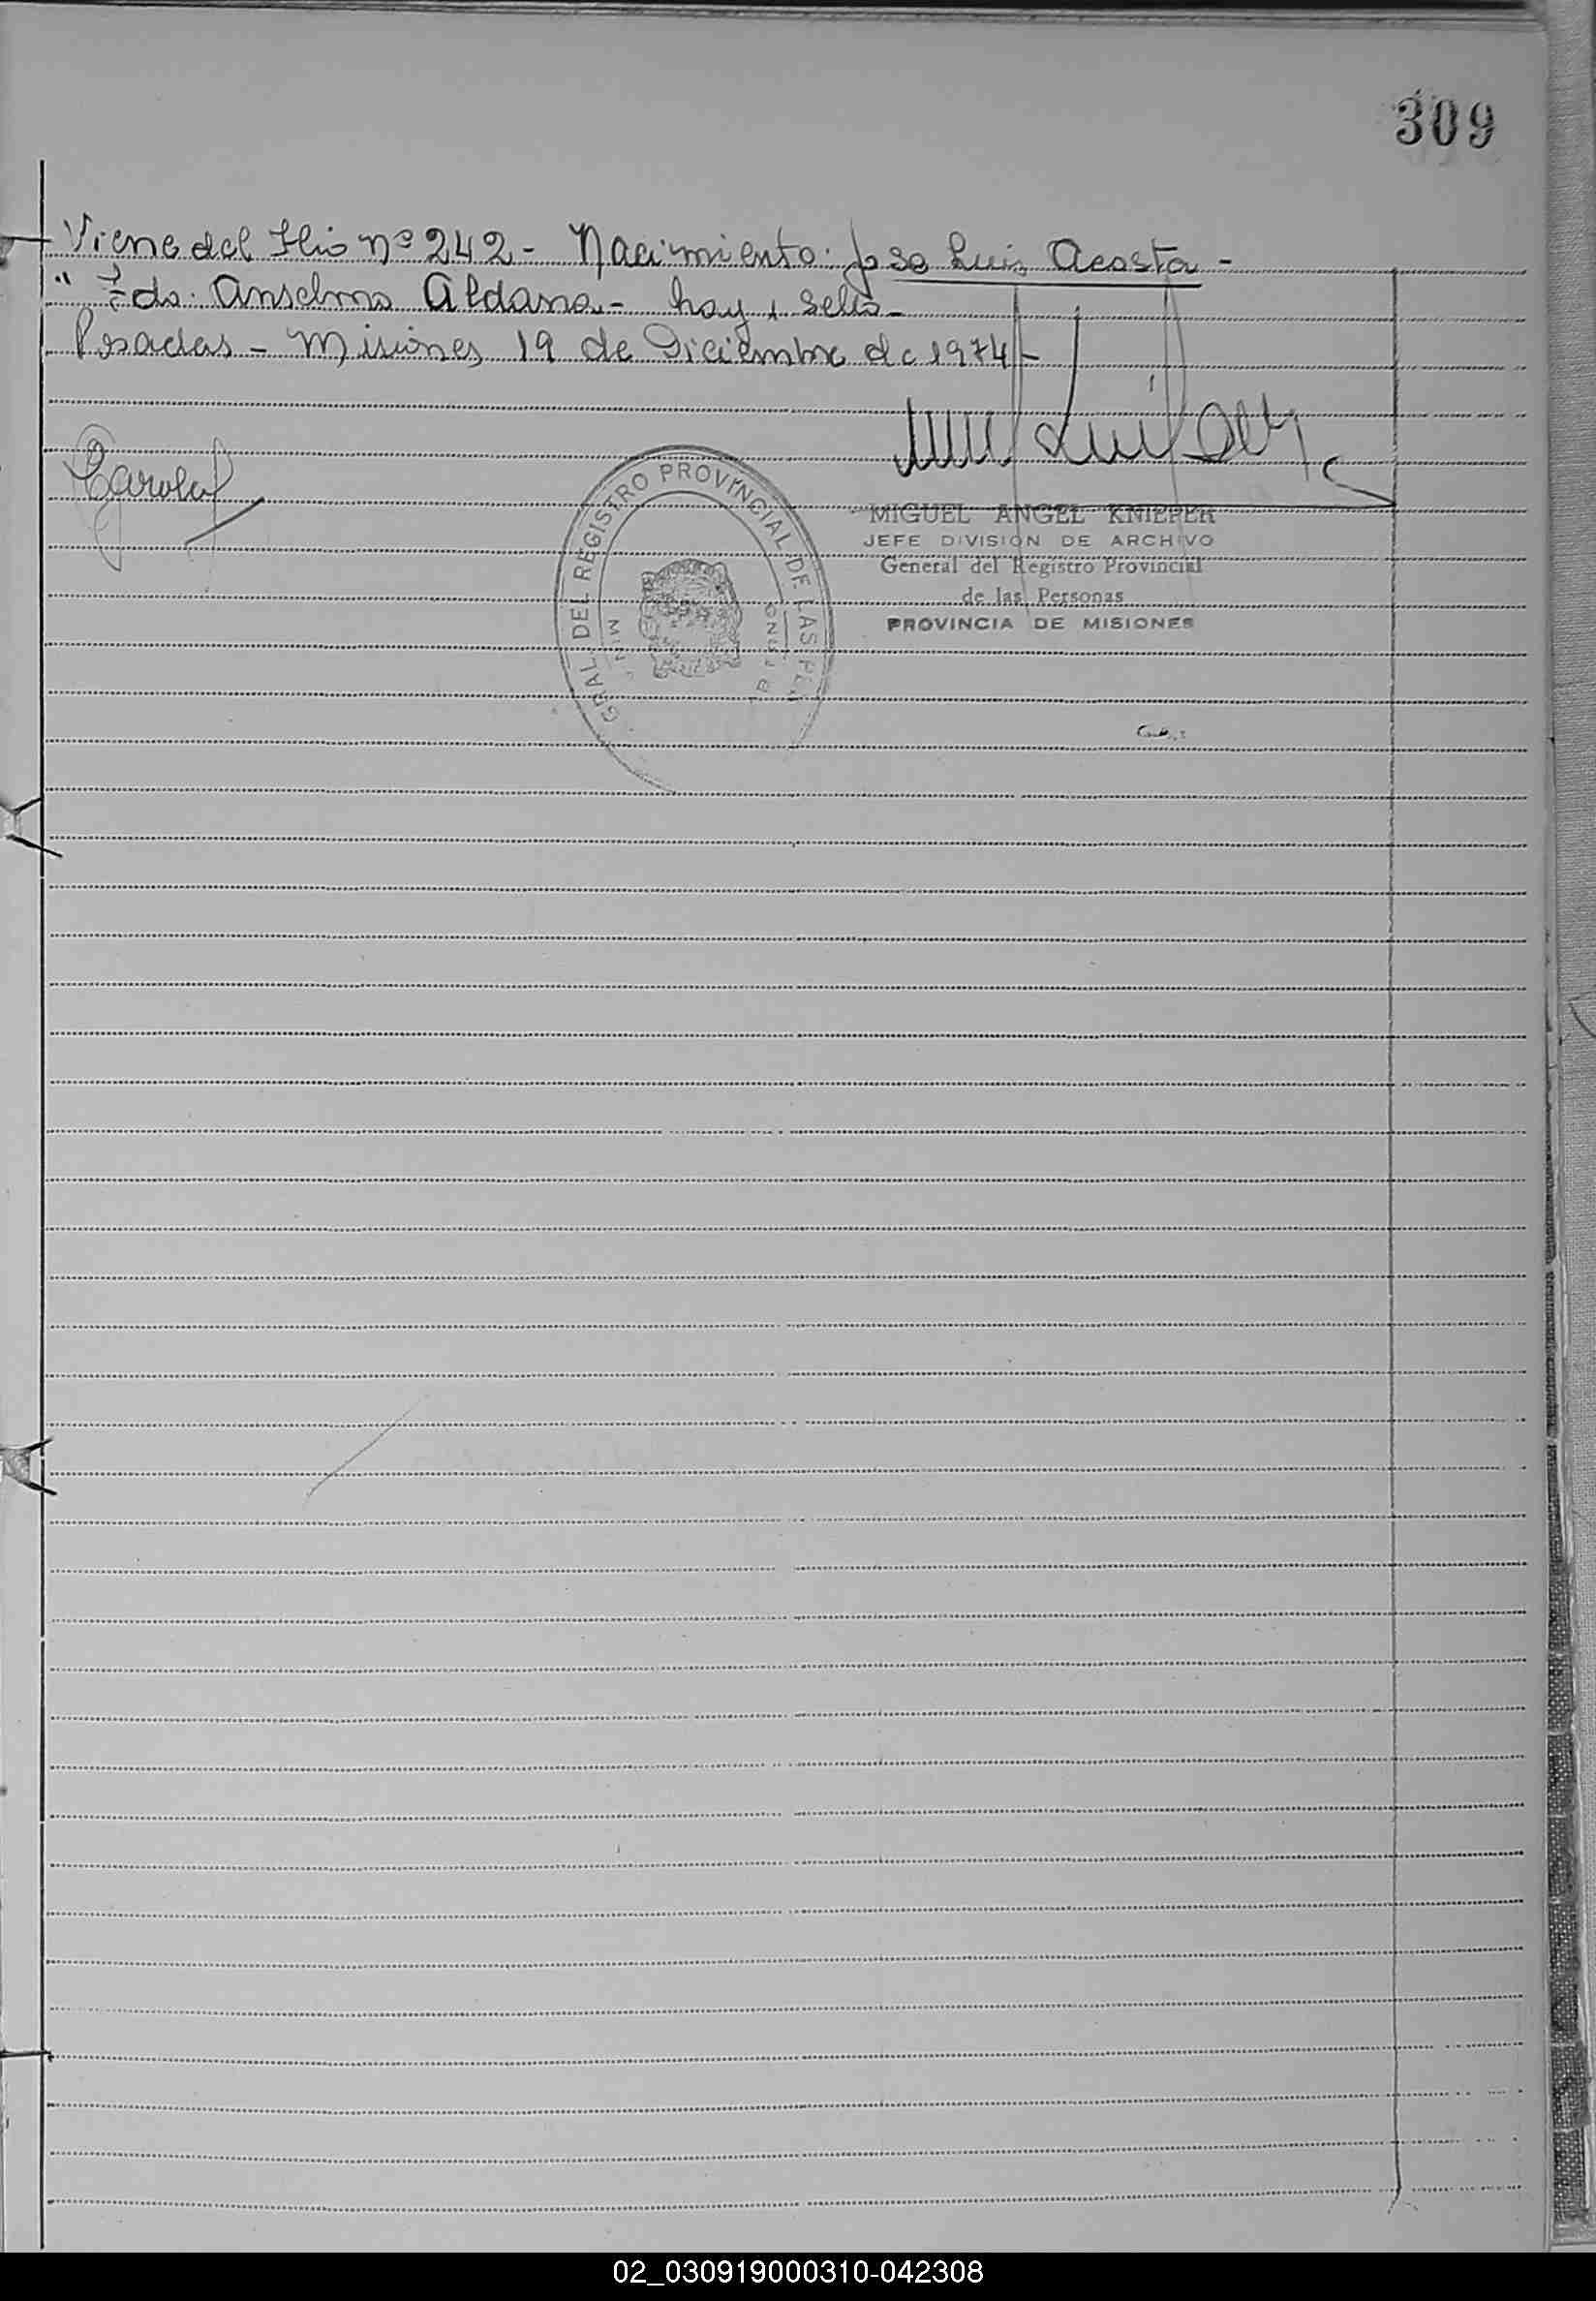 309
Viene del flio nº 242 - Nacimiento: Jose Luis Acosta -
" Fdo. Anselmo Aldana - hay 1 sello -
Posadas - Misiones 19 de Diciembre de 1974 -
GRAL. DEL REGISTRO PROVINCIAL DE LAS PE
MIGUEL ANGEL KNIEPER
JEFE DIVISION DE ARCHIVO
General del Registro Provincial
de las Personas
PROVINCIA DE MISIONES
02_030919000310-042308